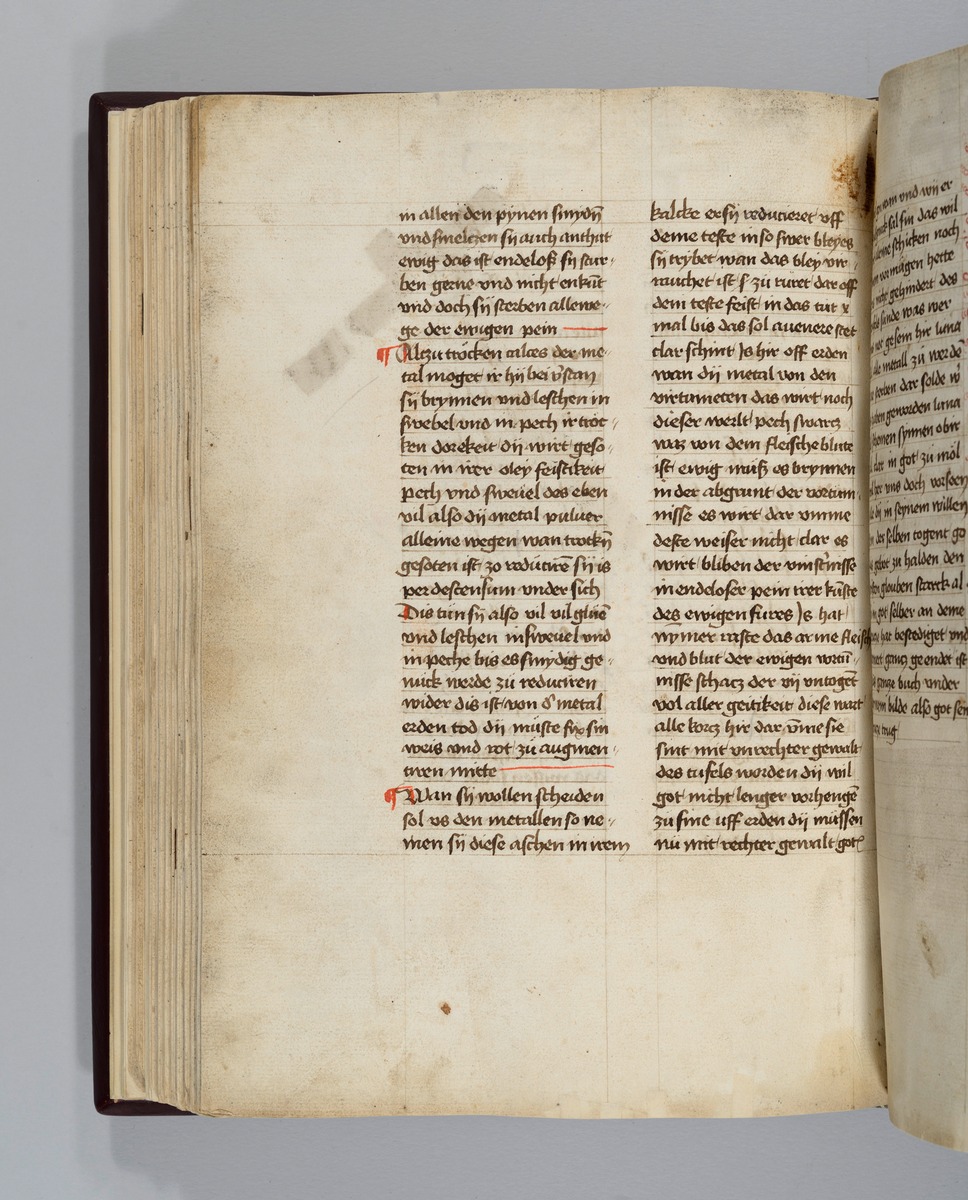 in allen den pynen smydn̄
vnd smelczen sÿ auch anthut
ewig das ist endeloß sÿ stur-
ben gerne vnd nicht enkūt
vnd doch sÿ sterben allewe-
ge der ewigen pein
¶ Alzu trocken calces der me-
tal moget ir hÿ bei v̄stan
sÿ brynnen vnd leschen in
swebel vnd in pech ir troc-
ken dorekeit dÿ wirt geso-
ten in irer oley feistikeit
pech vnd sweuel des eben
vil also dÿ metal puluer
alleine wegen wan trockn̄
gesoten ist zo reducirē sÿ is
per descensum vnder sich
Dis tun sÿ also vil vil gluiē
vnd leschen in sweuel vnd
in peche bis es smydig ge-
nuck werde zu reduciren
wider dis ist von d' metal
erden tod dÿ muste fix sin
weis vnd rot zu augmen-
tiren mitte
¶ Wan sÿ wollen scheiden
sol vs den metallen so ne-
men sÿ diese aschen in irem
kalcke er sÿ reducieret vff
deme teste in so swer bleyes
sÿ trÿbet wan das bley vir-
rauchet ist zu ruret dar off
dem teste feist in das tut x
mal bis das sol auenere stet
clar schint Is hir off erden
wan dÿ metal von den
virtumeten das wirt noch
dieser werlt pech swarcz
waz von dem fleische blute
ist ewig muß es brynnen
in der abgrunt der vortum-
nisse es wirt dar vmme
deste weiser nicht clar es
wirt bliben der vinst'nisse
in endeloser pein irer kūste
des ewigen fures Is hat
nymer raste das arme fleisch
vnd blut der ewigen vortū-
nisse schacz der vÿ vntoget
vol aller geitikeit diese wart
alle korcz hir dar v̄me sie
sint mit vnrechter gewalt
des tufels worden dÿ wil
got nicht lenger vorhengē
zu sine uff erden dÿ mussen
nu mit rechter gewalt gotz
vnd wÿ er
sal sin das wil
schicken noch
vermugen hette
gehindert des
sunde was wer
gesein hir luna
metall zu werdē
sterben dar solde
geworden luna
synnen obir
in got zu mol
vns doch vorseen
in seynem willen
der selben togent go
gebot zu halden den
glouben starck al
got selber an deme
hat bestediget vnd
gancz geendet ist
gancze buch vnder
bilde also got sein
trug